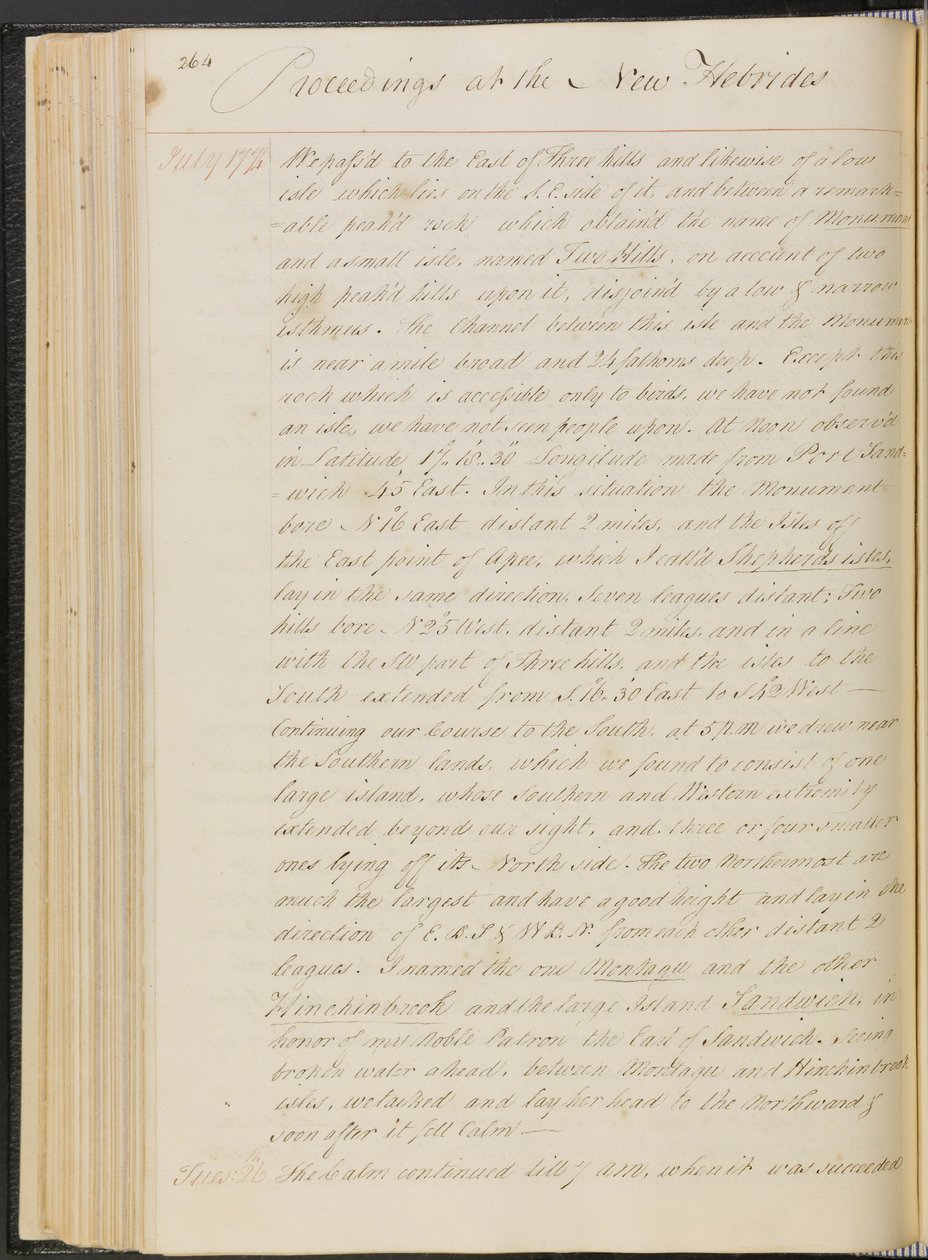 264
Proceedings at the New Hebrides
July 1774
We pass'd to the East of Three hills and likewise of a low
isle which lies on the S.E. side of it, and between a remark=
=able peak'd rock which obtain'd the name of Monument
and a small isle, named Two Hills, on account of two
high peak'd hills upon it, disjoin'd by a low & narrow
isthmus. The Channel between this isle and the Monument
is near a mile broad and 24 fathoms deep. Except this
rock which is accessible only to birds, we have not found
an isle, we have not seen people upon. At Noon observ'd
in Latitude 17°..18'..30" Longitude made from Port Sand=
=wich 45' East. In this situation the Monument
bore N 16° East distant 2 miles, and the Isles off
the East point of Apee, which I call'd Shepherds isles,
lay in the same direction, seven leagues distant; Two
hills bore N 25° West, distant 2 miles, and in a line
with the SW part of Three hills, and the isles to the
South extended from S. 16° 30' East to S 42° West —
Continuing our Course to the South, at 5 p.m we drew near
the Southern lands, which we found to consist of one
large island, whose Southern and Western extremity
extended beyond our sight, and three or four smaller
ones lying off its North side. The two Northermost are
much the largest and have a good height and lay in the
direction of E. B. S & W B. N. from each other distant 2
leagues. I named the one Montagu and the other
Hinchinbrook and the large Island Sandwich, in
honor of my Noble Patron the Earl of Sandwich. Seeing
broken water ahead, between Montagu and Hinchinbrook
isles, we tacked and lay her head to the Northward &
soon after it fell Calm —
Tues: 26th The Calm continued till 7 am, when it was succeeded